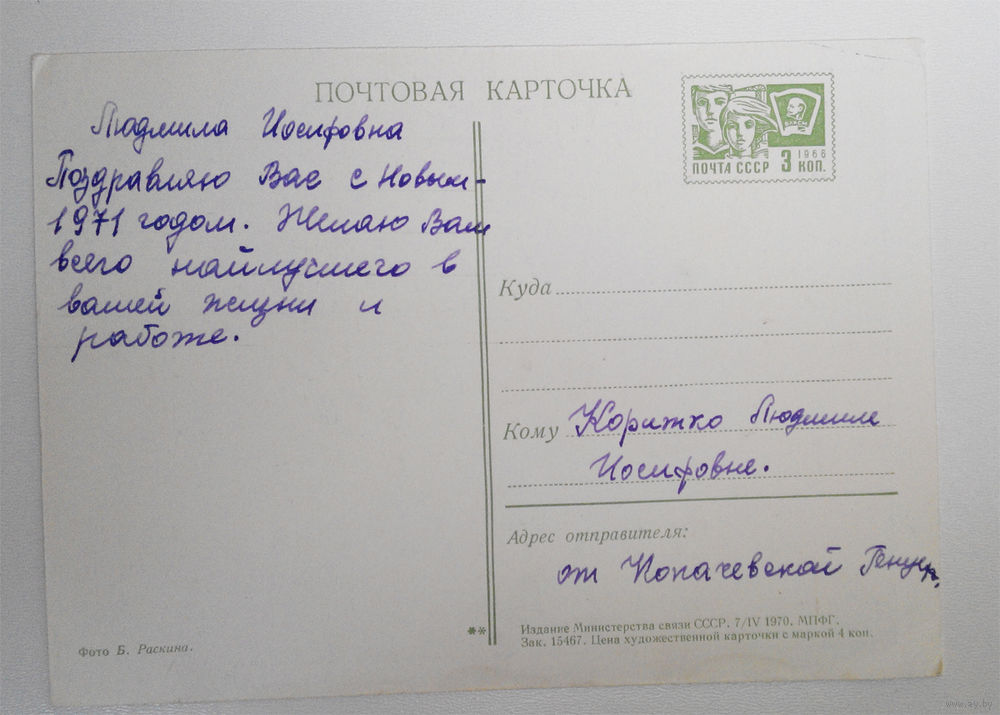 ПОЧТОВАЯ КАРТОЧКА
Людмила Иосифовна
Поздравляю Вас с Новым-
1971 годом. Желаю Вам
всего найлучшего в
вашей жизни и
работе.
ПОЧТА СССР
1966
3 КОП.
ВЛКСМ
Куда
Кому Корижко Людмиле
Иосифовне.
Адрес отправителя:
от Копачевской
Издание Министерства связи СССР. 7/IV 1970. МПФГ.
Зак. 15467. Цена художественной карточки с маркой 4 коп.
**
Фото Б. Раскина.
www.ay.by